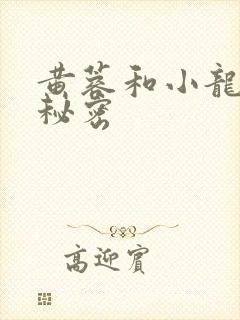 黄蓉和小龍
秘密
高迎賓